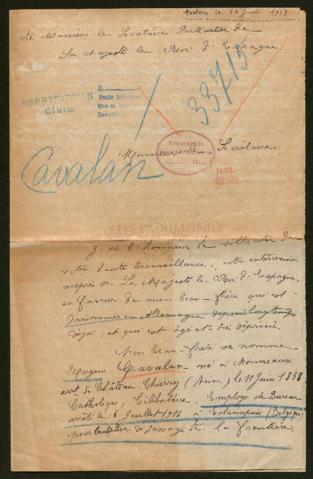 le 24 Juin 1918
A Monsieur le Secrétaire Particulier de
Sa Majesté le Roi d'Espagne
33715
REPATRIACION
CIVIL
Cavalan
Monsieur le Secrétaire
J'ai l'honneur de solliciter de
votre haute bienveillance, votre intervention
auprès de Sa Majesté le Roi d'Espagne,
en faveur de mon beau-frère qui est
prisonnier en Allemagne depuis longtemps
déjà, et qui est âgé et très déprimé.
Mon beau-frère se nomme
Cavalan né à
arrt de Château Thierry (Aisne) le 11 Juin 1858
Catholique, Célibataire, Employé de Bureau
arrêté le 6 Juillet 1916 à (Belgique)
pour tentative de passage de la frontière